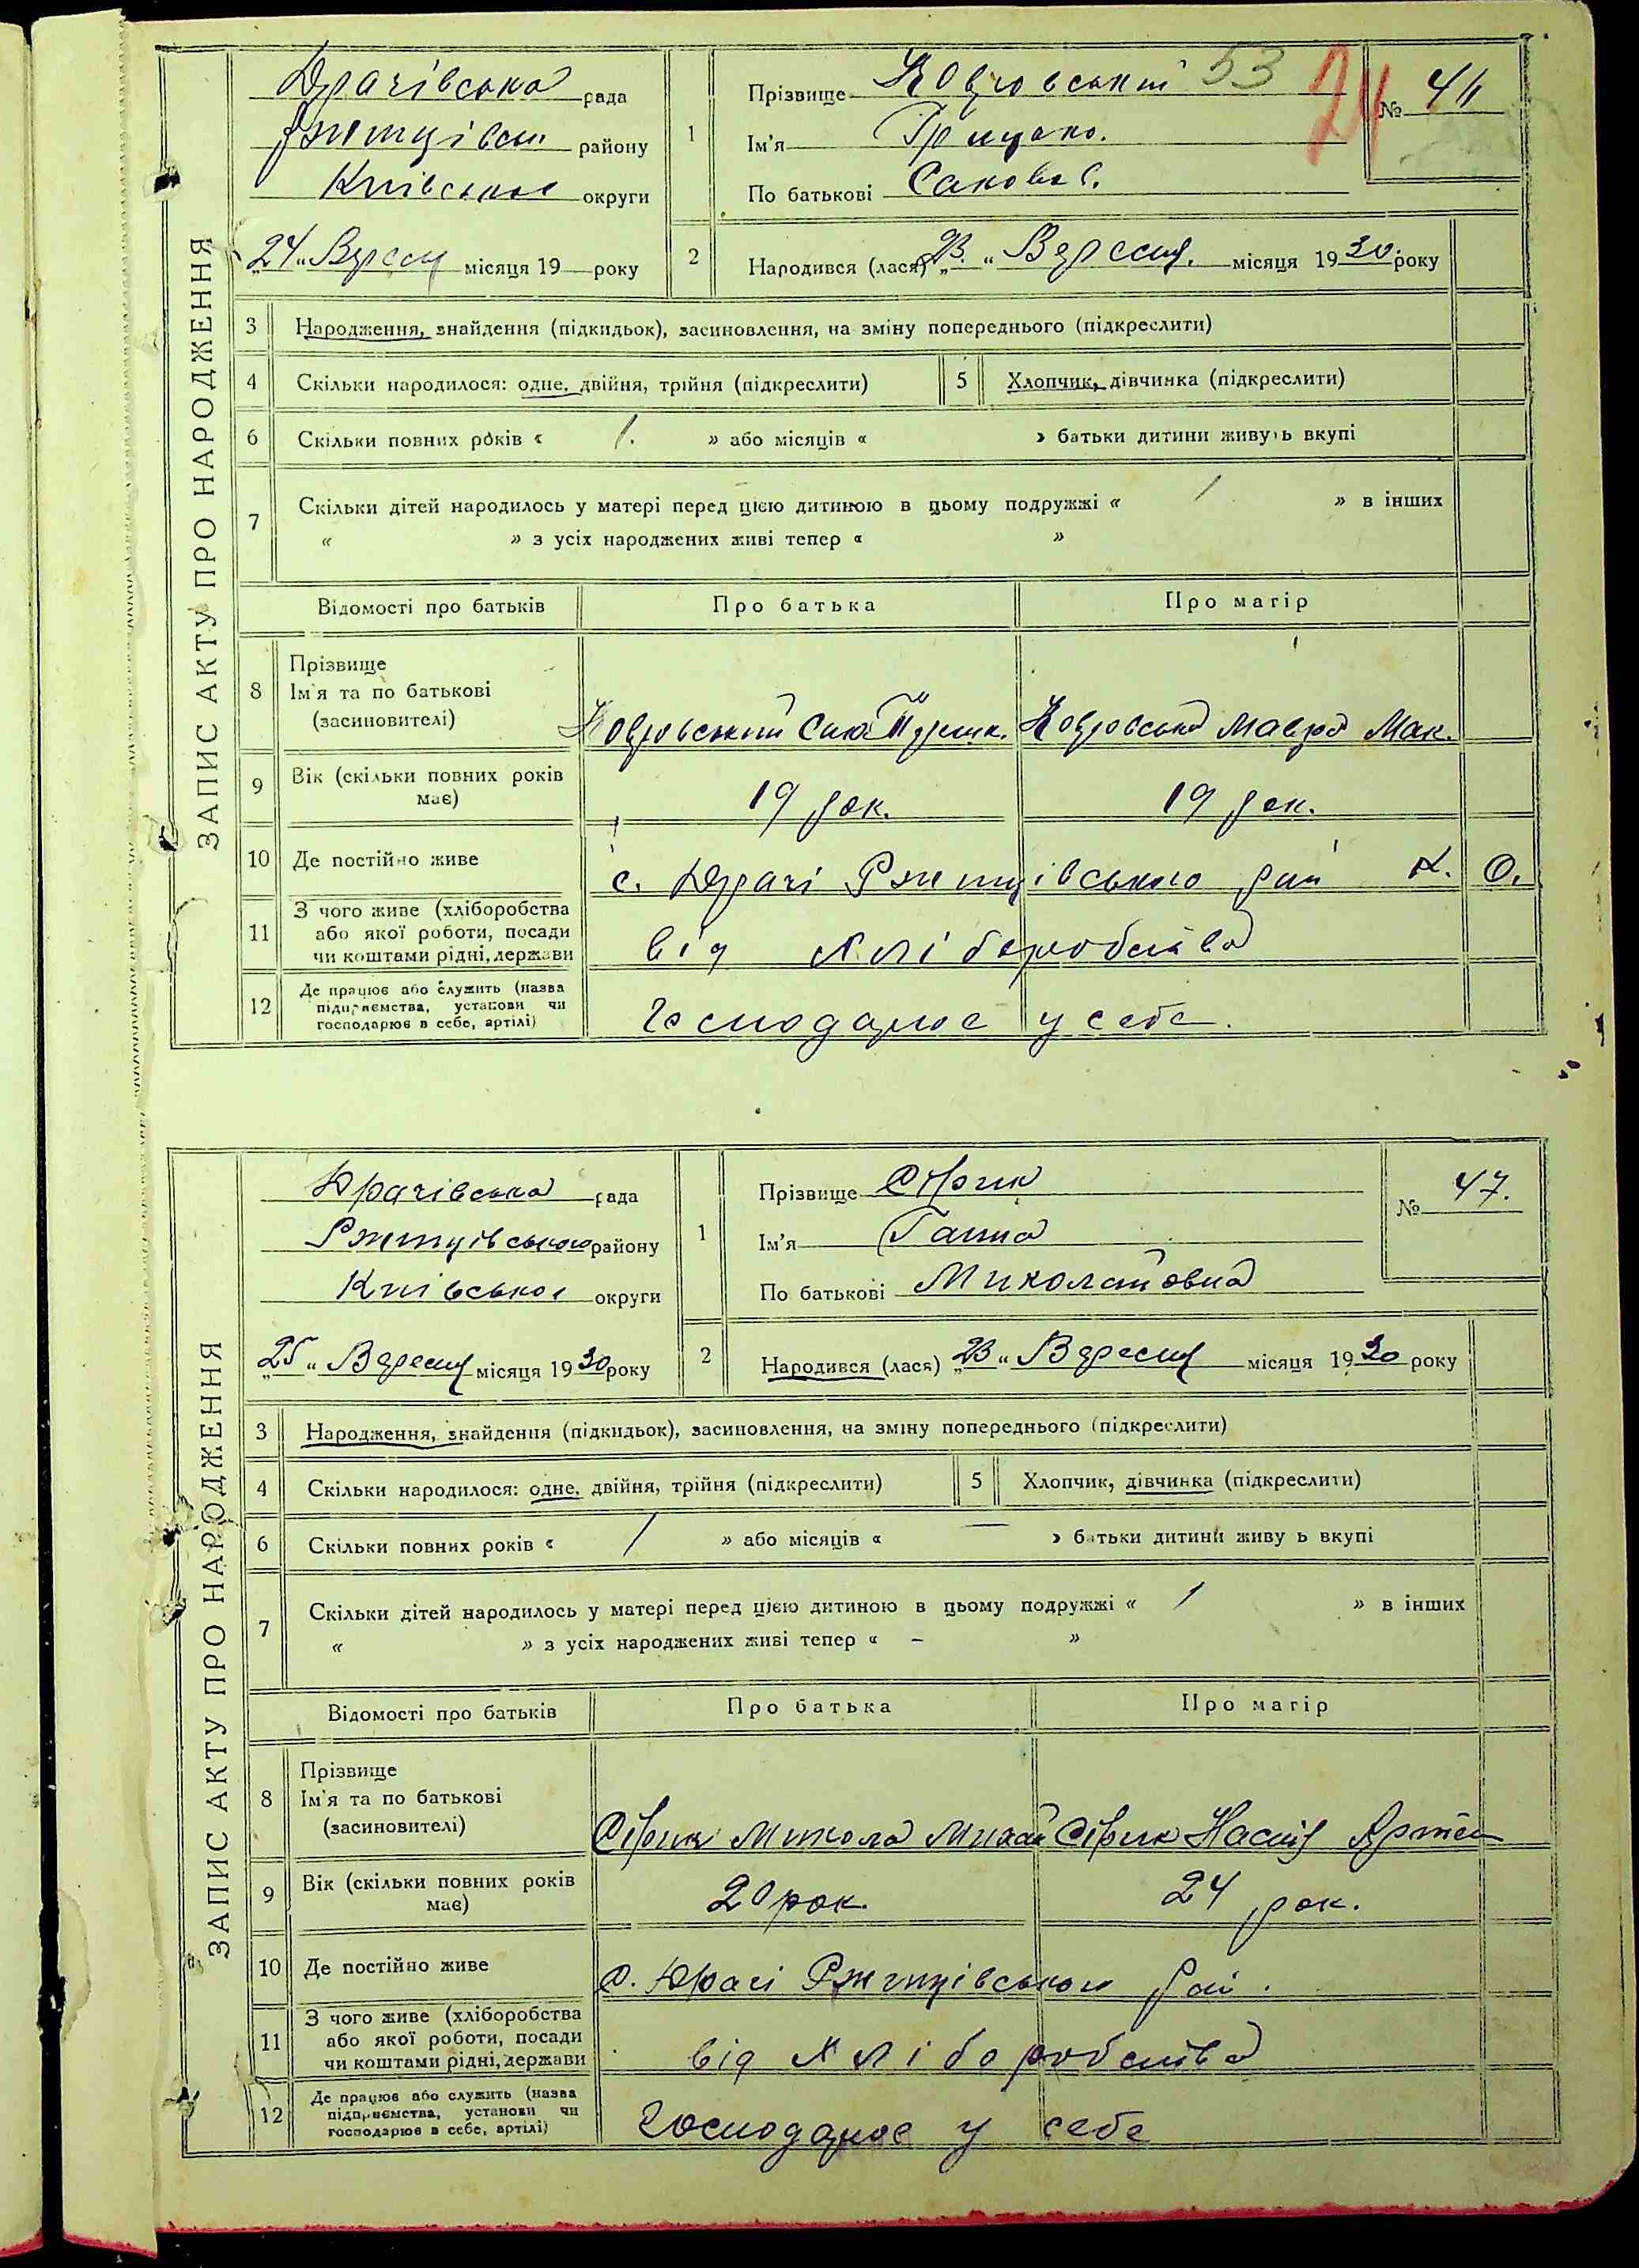 ЗАПИС АКТУ ПРО НАРОДЖЕННЯ
Драчівська рада
району
Київської округи
„24“ Вересн місяця 19 року
1
Прізвище 53 24
Ім'я Грицько.
По батькові
№
2
Народився (лася) „23“ Вересня. місяця 1930 року
3 Народження, знайдення (підкидьок), засиновлення, на зміну попереднього (підкреслити)
4 Скільки народилося: одне, двійня, трійня (підкреслити) 5 Хлопчик, дівчинка (підкреслити)
6 Скільки повних років « 1. » або місяців « » батьки дитини живуть вкупі
7 Скільки дітей народилось у матері перед цією дитиною в цьому подружжі « / » в інших
« » з усіх народжених живі тепер « »
Відомості про батьків Про батька Про матір
8 Прізвище
Ім'я та по батькові
(засиновителі)
Мавра Мак.
9 Вік (скільки повних років має) 19 рок. 19 рок.
10 Де постійно живе с. Драчі Ржищівського рай К. О.
11 З чого живе (хліборобства або якої роботи, посади чи коштами рідні, держави від хліборобства
12 Де працює або служить (назва підприємства, установи чи господарює в себе, артілі) Господарює у себе.
ЗАПИС АКТУ ПРО НАРОДЖЕННЯ
Драчівська рада
Ржищівського району
Київської округи
„25“ Вересня місяця 1930 року
1
Прізвище Сірик
Ім'я Ганна
По батькові Миколаївна
№ 47.
2
Народився (лася) „23“ Вересня місяця 1930 року
3 Народження, знайдення (підкидьок), засиновлення, на зміну попереднього (підкреслити)
4 Скільки народилося: одне, двійня, трійня (підкреслити) 5 Хлопчик, дівчинка (підкреслити)
6 Скільки повних років « / » або місяців « — » батьки дитини живу ь вкупі
7 Скільки дітей народилось у матері перед цією дитиною в цьому подружжі « / » в інших
« » з усіх народжених живі тепер « – »
Відомості про батьків Про батька Про матір
8 Прізвище
Ім'я та по батькові
(засиновителі)
Сірик Микола Михай Сірик Настя Артем
9 Вік (скільки повних років має) 20 рок. 24 рок.
10 Де постійно живе с. Драчі Ржищівського рай.
11 З чого живе (хліборобства або якої роботи, посади чи коштами рідні, держави від хліборобства
12 Де працює або служить (назва підприємства, установи чи господарює в себе, артілі) Господарює у себе